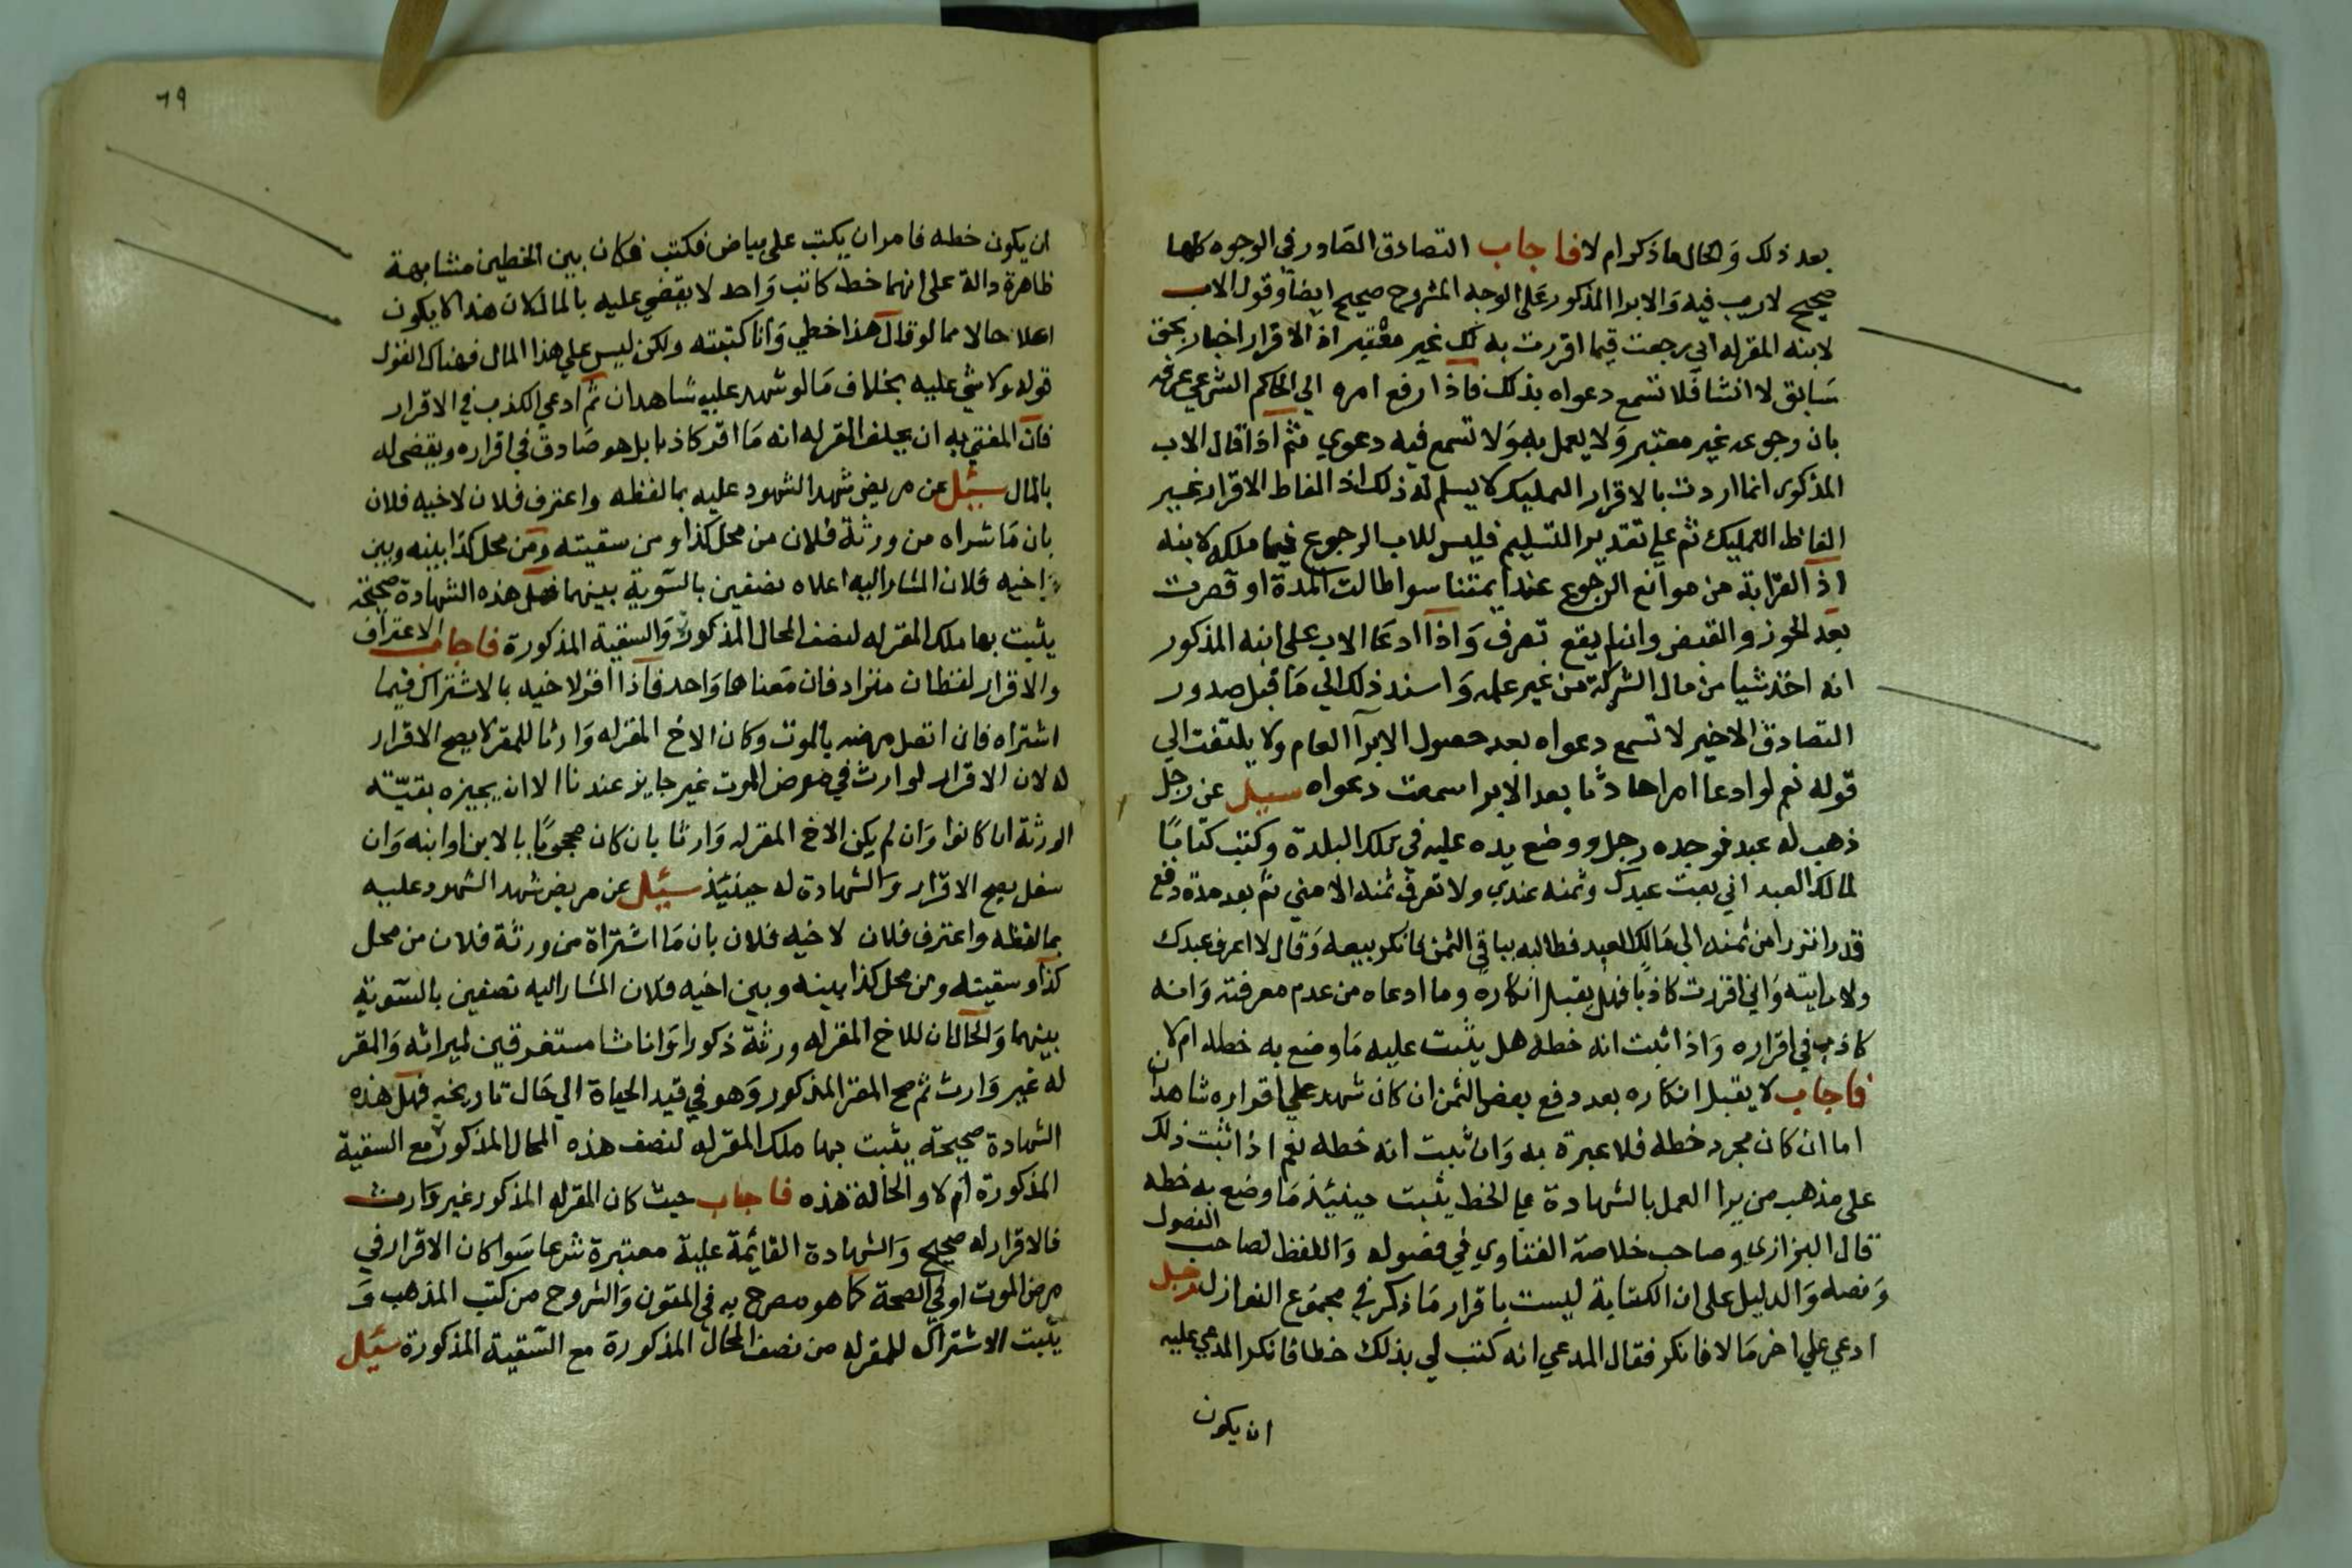 بعد ذلك والحال ما ذكر ام لا فاجاب التصادق الصادر في الوجوه كلها
صحيح لا ريب فيه والابرا المذكور على الوجه المشروح صحيح ايضا وقول الاب
لابنه المقر له اني رجعت فيما اقررت به لك غير معتبر اذ الاقرار اخبار بحق
سابق لا انشا فلا تسمع دعواه بذلك فاذا رفع امره الي الحاكم الشرعي عرفه
بان رجوعه غير معتبر ولا يعمل به ولا تسمع فيه دعوي ثم اذا قال الاب
المذكور انما اردت بالاقرار التمليك لا يسلم له ذلك اذ الفاظ الاقرار غير
الفاظ التمليك ثم علي تقدير التسليم فليس للاب الرجوع فيما ملكه لابنه
اذ القرابة من موانع الرجوع عند ايمتنا سوا طالت المدة او قصرت
بعد الحوز والقبض وان لم يقع تصرف واذا ادعا الاب علي ابنه المذكور
انه اخذ شيا من مال الشركة من غير علمه واسند ذلك الي ما قبل صدور
التصادق الاخير لا تسمع دعواه بعد حصول الابرا العام ولا يلتفت الي
قوله نعم لو ادعا امرا حادثا بعد الابرا سمعت دعواه سيل عن رجل
ذهب له عبد فوجده رجل ووضع يده عليه في تلك البلدة وكتب كتابا
لمالك العبد اني بعت عبدك وثمنه عندي ولا تعرف ثمنه الا مني ثم بعد مدة دفع
قدرا نزرا من ثمنه الي مالك العبد فطالبه بباقي الثمن فانكر بيعه وقال لا اعرف عبدك
ولا رايته واني اقررت كاذبا فهل يقبل انكاره وما ادعاه من عدم معرفته وانه
كاذب في اقراره واذا ثبت انه خطه هل يثبت عليه ما وضع به خطه ام لا
فاجاب لا يقبل انكاره بعد دفع بعض الثمن ان كان شهد علي اقراره شاهدان
اما ان كان مجرد خطه فلا عبرة به وان ثبت انه خطه نعم اذا ثبت ذلك
على مذهب من يرا العمل بالشهادة علي الخط يثبت حينيذ ما وضع به خطه
قال البزازي وصاحب خلاصة الفتاوي في فصوله واللفظ لصاحب الفصول
ونصه والدليل على ان الكتابة ليست باقرار ما ذكر في مجموع النوازل رجل
ادعي علي اخر مالا فانكر فقال المدعي انه كتب لي بذلك خطا فانكر المدعي عليه
ان يكون
٦٩
ان يكون خطه فامر ان يكتب علي بياض فكتب فكان بين الخطين مشابهة
ظاهرة دالة على انهما خط كاتب واحد لا يقضي عليه بالمال لان هذا لا يكون
اعلا حالا مما لو قال هذا خطي وانا كتبته ولكن ليس علي هذا المال فهناك القول
قوله ولا شي عليه بخلاف ما لو شهد عليه شاهدان ثم ادعي الكذب في الاقرار
فان المفتي به ان يحلف المقر له انه ما اقر كاذبا بل هو صادق في اقراره ويقضى له
بالمال سئيل عن مريض شهد الشهود عليه بما لفظه واعترف فلان لاخيه فلان
بان ما شراه من ورثة فلان من محل كذا ومن سقيته ومن محل كذا بينه وبين
اخيه فلان المشار اليه اعلاه نصفين بالسوية بينهما فهل هذه الشهادة صحيحة
يثبت بها ملك المقر له لنصف المحال المذكورة والسقية المذكورة فاجاب الاعتراف
والاقرار لفظان مترادفان معناهما واحد فاذا اقر لاخيه بالاشتراك فيما
اشتراه فان اتصل مرضه بالموت وكان الاخ المقر له وارثا للمقر لا يصح الاقرار
له لان الاقرار لوارث في مرض الموت غير جايز عندنا الا ان يجيزه بقية
الورثة ان كانوا وان لم يكن الاخ المقر له وارثا بان كان محجوبا بالابن او ابنه وان
سفل يصح الاقرار والشهادة له حينيذ سئيل عن مريض شهد الشهود عليه
بما لفظه واعترف فلان لاخيه فلان بان ما اشتراه من ورثة فلان من محل
كذا وسقيته ومن محل كذا بينه وبين اخيه فلان المشار اليه نصفين بالسوية
بينهما والحال ان للاخ المقر له ورثة ذكورا واناثا مستغرقين لميراثه والمقر
له غير وارث ثم صح المقر المذكور وهو في قيد الحياة الي حال تاريخه فهل هذه
الشهادة صحيحة يثبت بها ملك المقر له لنصف هذه المحال المذكورة مع السقية
المذكورة ام لا والحالة هذه فاجاب حيث كان المقر له المذكور غير وارث
فالاقرار له صحيح والشهادة القايمة علية معتبرة شرعا سوا كان الاقرار في
مرض الموت او في الصحة كما هو مصرح به في المتون والشروح من كتب المذهب و
يثبت الاشتراك للمقر له من نصف المحال المذكورة مع السقية المذكورة سئيل